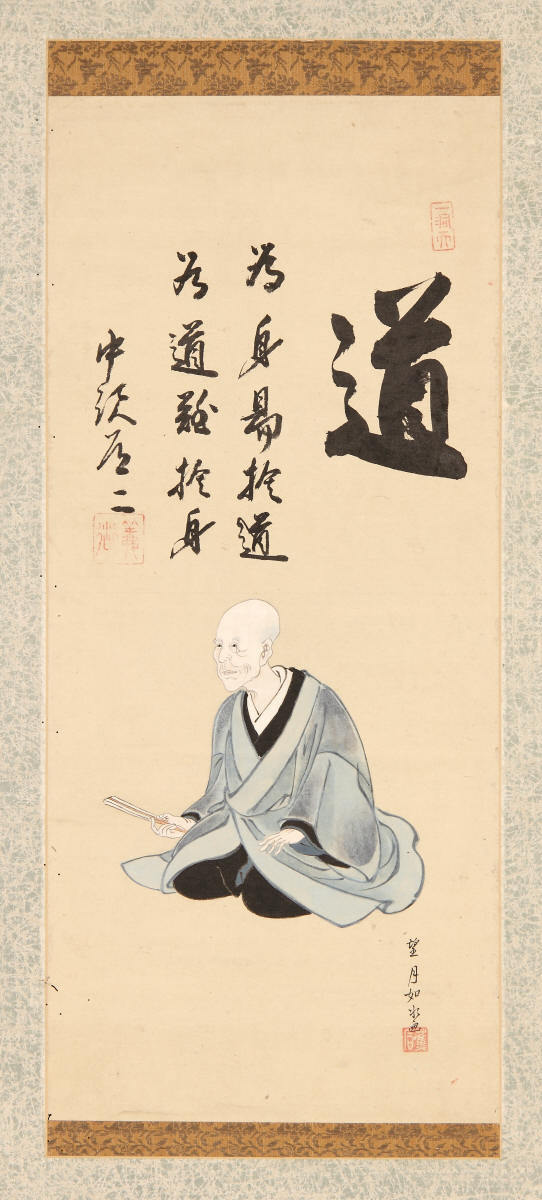 道
為身易捨道
為道難捨身
中沢道二
望月如水画